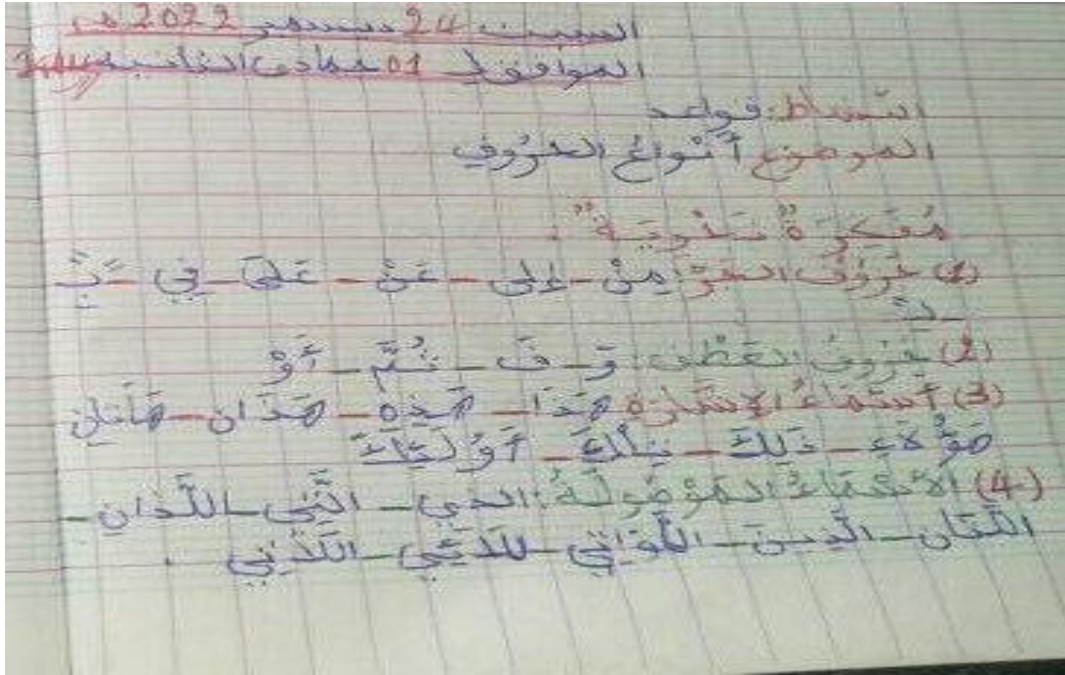 السبت 24 ديسمبر 2022 م
الموافق لـ 01 جمادى الثانية
النشاط: قواعد
الموضوع أَنْوَاعُ الحُرُوفِ
مُفَكِرَةٌ نَحْوِيَةٌ" :
(1) حُرُوفُ الجَرِّ: مِنْ - إِلى - عَنْ - عَلَى - فِي - بِ
- لِ
(2) حُرُوفُ العَطْفِ: وَ - فَ - ثُمَّ - أَوْ
(3) أَسْمَاءُ الإِشَارَة هَذَا - هَذِهِ - هَذَانِ - هَاتَانِ
هَؤُلَاءِ - ذَلِكَ - تِلْكَ - أُولَئِكَ
(4) الأَسْمَاءُ المَوْصُولَةُ: الذي - الَّتِي - اللَّذانِ -
اللَّتَانِ - الَّذِينَ - اللَّوَاتِي - اللَّائِي - اللَّاتِي .